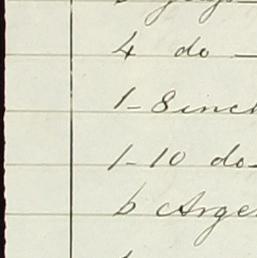 4 do —
1-8 inch
1-10 do-
6 Arge